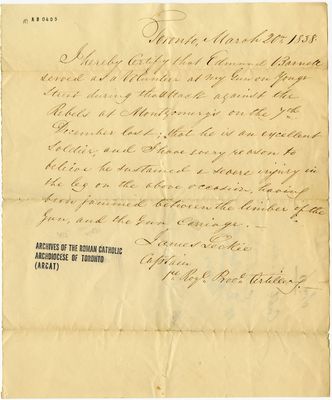 AB0605
Toronto, March 20th, 1838.
I hereby Certify that Edmund Barnett
served as a Volunteer at my Gun on Yonge
Street during the attack against the
Rebels at Montgomerys on the 7th
December last; that he is an excellent
Soldier, and I have every reason to
believe he sustained a severe injury in
the leg on the above occasion, having
been jammed between the limber of the
Gun, and the Gun Carriage. —
James Leckie
Captain
1st Royl. Artillery.
ARCHIVES OF THE ROMAN CATHOLIC
ARCHDIOCESE OF TORONTO
(ARCAT)